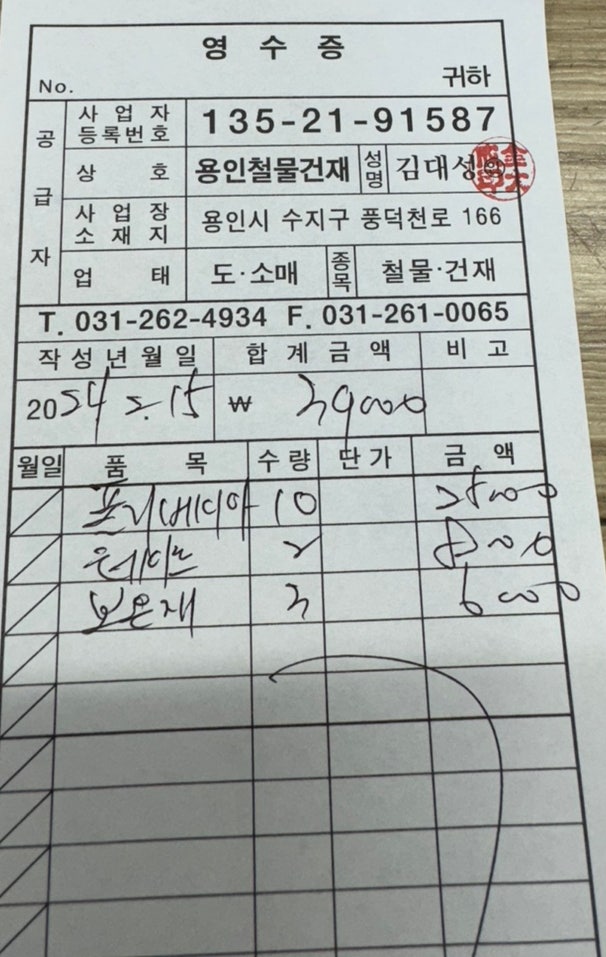 영 수 증
No. 귀하
공급자
사업자등록번호 135-21-91587
상 호 용인철물건재 성명 김대성 ㊞
사업장소재지 용인시 수지구 풍덕천로 166
업 태 도·소매 종목 철물·건재
T. 031-262-4934 F. 031-261-0065
작성년월일 합계금액 비고
2024 2. 15 ₩ 39000
월일 품 목 수량 단가 금액
10 25000
은테이프 2 8000
보온재 3 6000